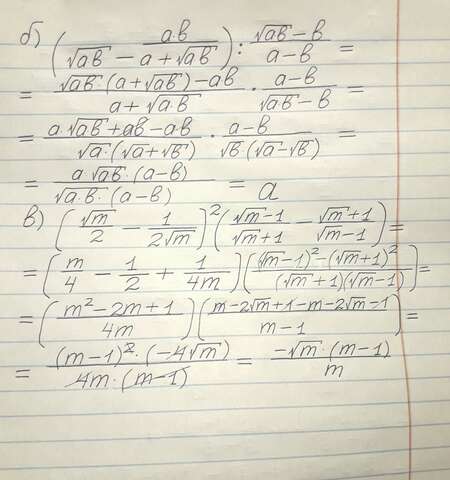 б) (√ab - ab/(a+√ab)) : (√ab - b)/(a - b) =
= (√ab·(a+√ab) - ab)/(a+√ab) · (a-b)/(√ab - b) =
= (a√ab + ab - ab)/(√a·(√a+√b)) · (a-b)/(√b(√a-√b)) =
= (a√ab·(a-b))/(√a·b·(a-b)) = a
в) (√m/2 - 1/(2√m))² ((√m-1)/(√m+1) - (√m+1)/(√m-1)) =
= (m/4 - 1/2 + 1/(4m)) (((√m-1)² - (√m+1)²)/((√m+1)(√m-1))) =
= ((m²-2m+1)/(4m)) ((m-2√m+1-m-2√m-1)/(m-1)) =
= ((m-1)²·(-4√m))/(4m·(m-1)) = (-√m·(m-1))/m